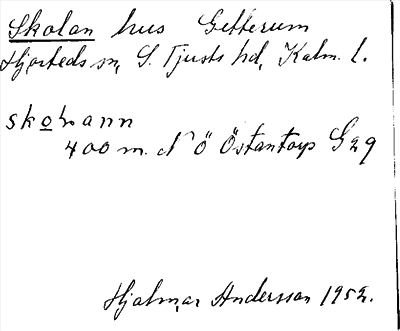 Skolan hus Getterum
Hjorteds sn, S. Tjusts hd, Kalm. l.
skolann
400 m. N Ö Östantorp G 29
Hjalmar Andersson 1952.